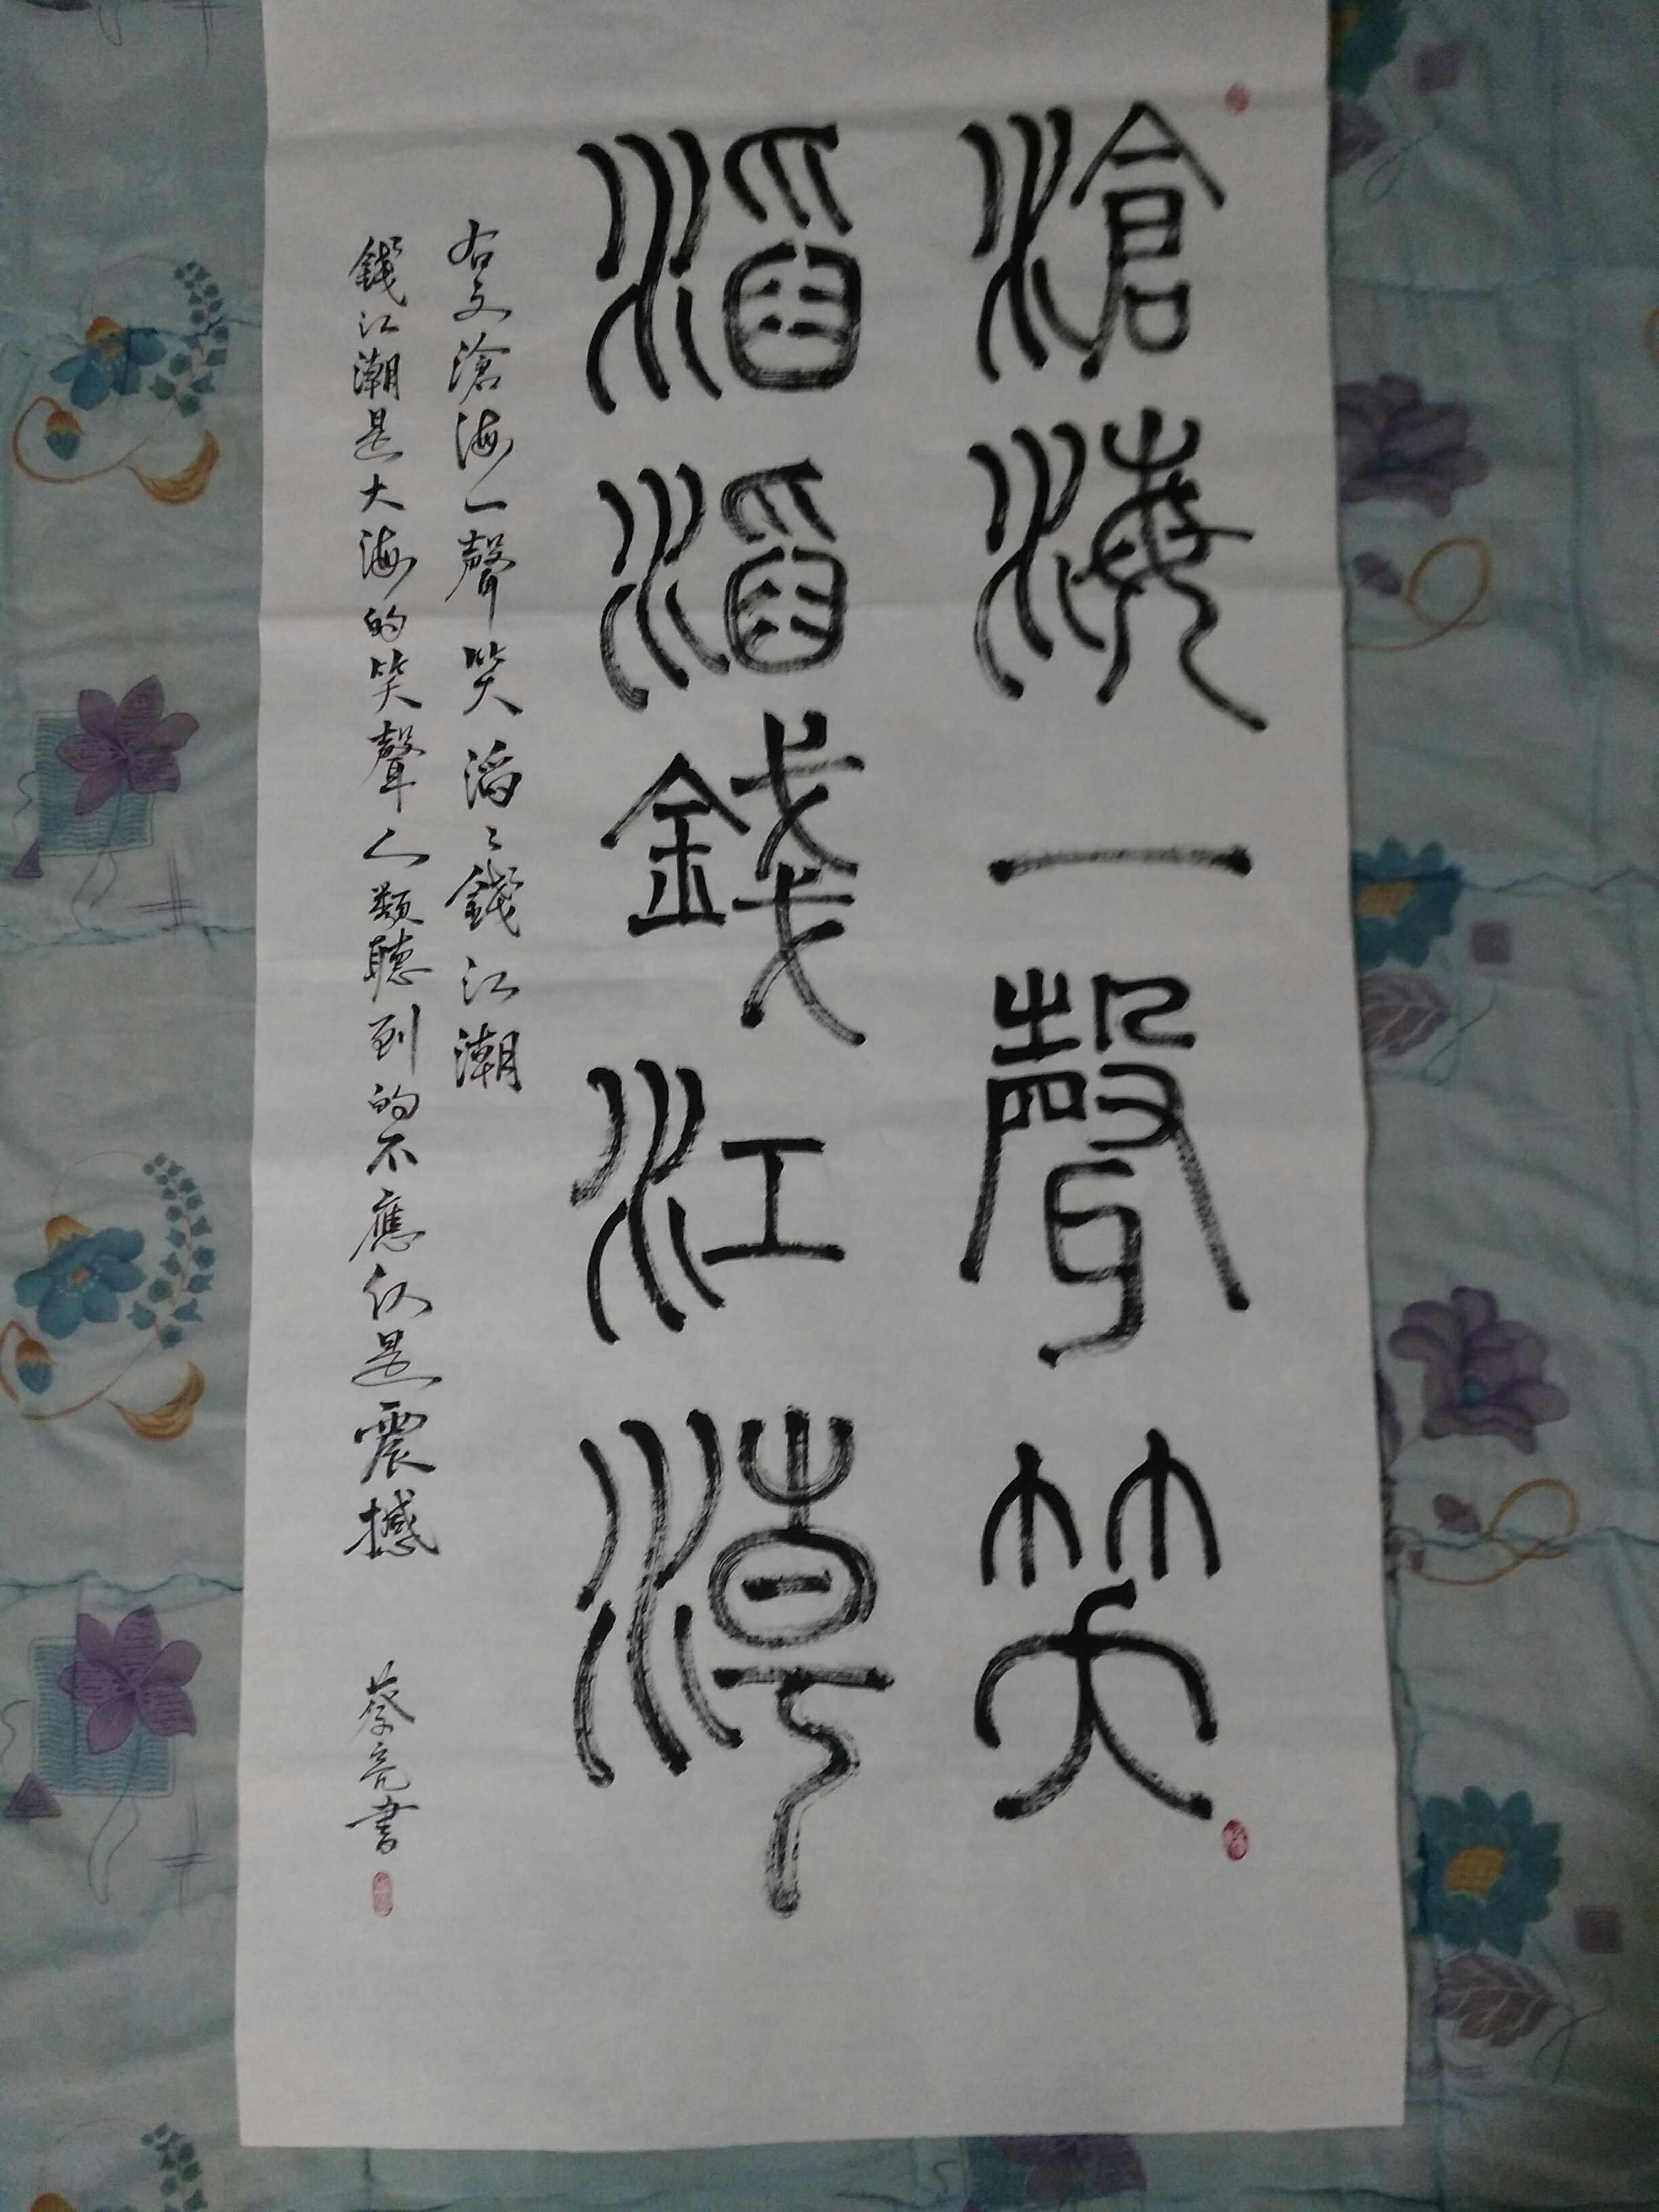 滄海一聲笑
滔滔錢江潮
右文滄海一聲笑滔〻錢江潮
錢江潮是大海的笑聲人類聽到的不應仅是震撼
蔡亮書